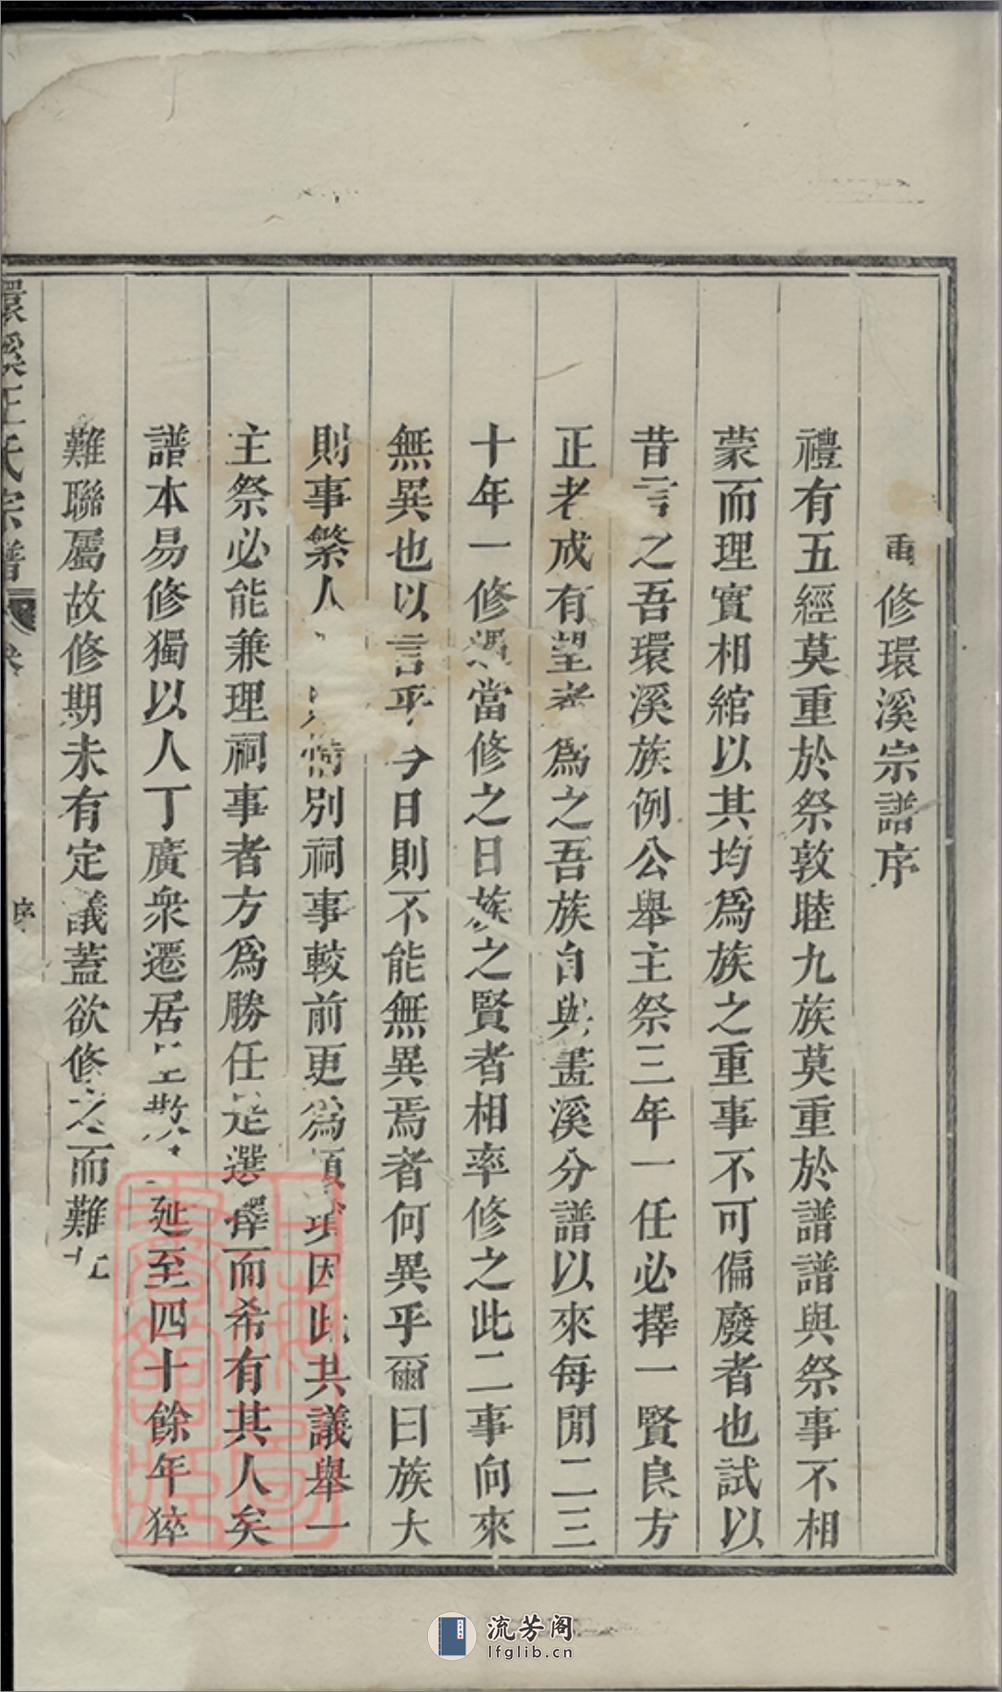 重修環溪宗譜序
禮有五經莫重於祭敦睦九族莫重於譜譜與祭事不相
蒙而理實相綰以其均為族之重事不可偏廢者也試以
昔言之吾環溪族例公舉主祭三年一任必擇一賢良方
正老成有望者為之吾族自與畫溪分譜以來每閒二三
十年一修遇當修之日族之賢者相率修之此二事向來
無異也以言乎今日則不能無異焉者何異乎爾曰族大
則事繁人情別祠事較前更為瑣因此共議舉一
主祭必能兼理祠事者方為勝任是選擇而希有其人矣
譜本易修獨以人丁廣衆遷居散延至四十餘年猝
難聯屬故修期未有定議蓋欲修之而難
環溪王氏宗譜
卷
序
流芳阁
lfglib.cn